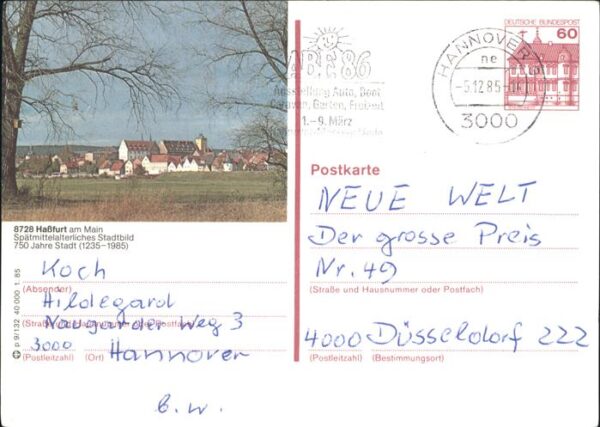 DEUTSCHE BUNDESPOST
60
HANNOVER
ne
-5.12.85-
3000
ABF 86
Ausstellung Auto, Boot
Caravan, Garten, Freizeit
1.-9. März
8728 Haßfurt am Main
Spätmittelalterliches Stadtbild
750 Jahre Stadt (1235–1985)
p 9/132 40 000 1. 85
Koch
(Absender)
Hildegard
(Straße und Hausnummer oder Postfach)
Naugarder Weg 3
3000 Hannover
(Postleitzahl) (Ort)
b. w.
Postkarte
NEUE WELT
Der grosse Preis
Nr. 49
(Straße und Hausnummer oder Postfach)
4000 Düsseldorf 222
(Postleitzahl) (Bestimmungsort)